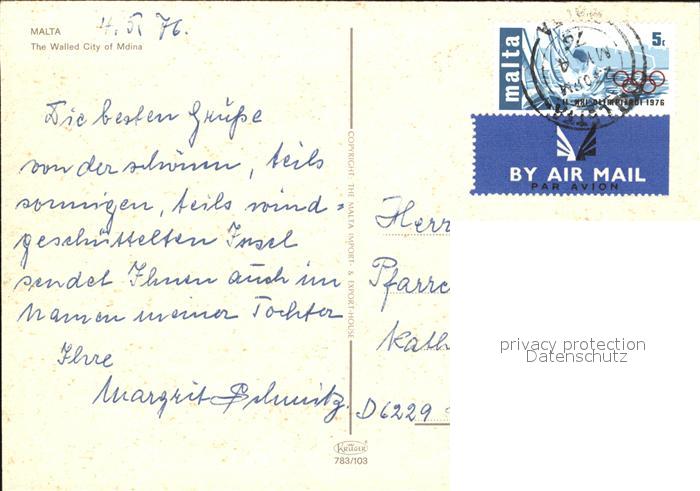 MALTA
The Walled City of Mdina
4. 5. 76.
Die besten Grüße
von der schönen, teils
sonnigen, teils wind=
geschüttelten Insel
sendet Ihnen auch im
Namen meiner Tochter
Ihre
Margrit Schmitz.
COPYRIGHT THE MALTA IMPORT- & EXPORT-HOUSE
KRÜGER
783/103
malta
5c
XXI OLIMPIJADI 1976
BY AIR MAIL
PAR AVION
Herr
Pfarre
Kath
D 6229
privacy protection
Datenschutz